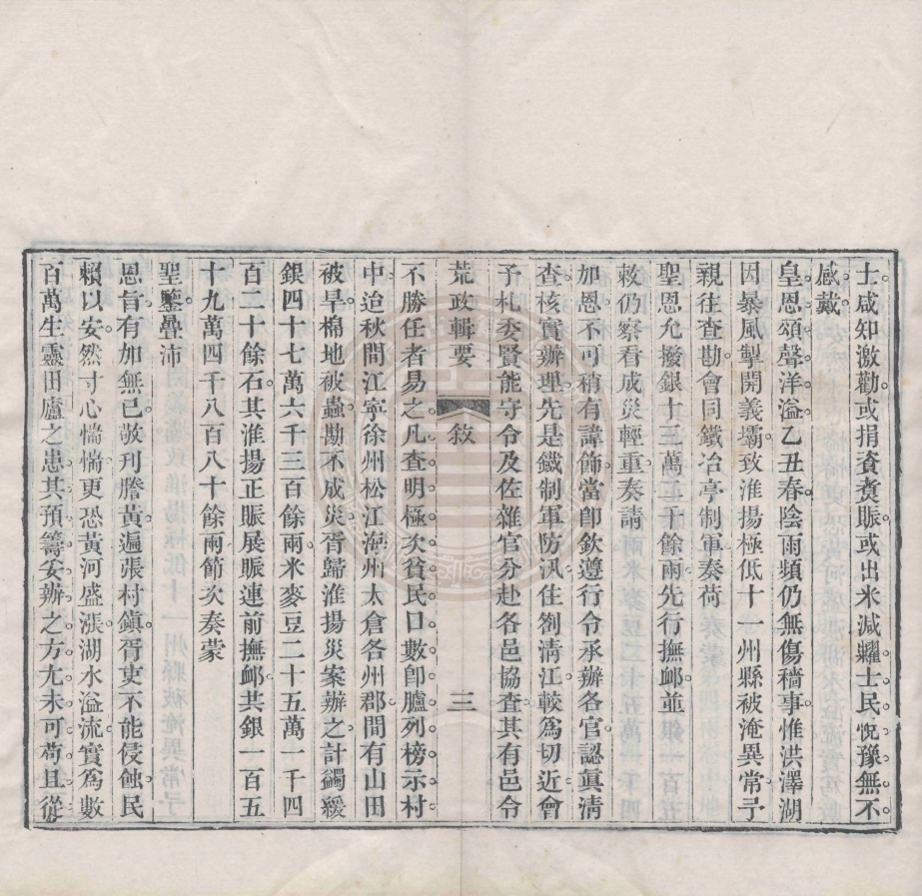 士咸知激勸或捐資煑賑或出米減糶士民悅豫無不
感戴
皇恩頌聲洋溢乙丑春陰雨頻仍無傷穡事惟洪澤湖
因暴風掣開義壩致淮揚極低十一州縣被淹異常予
親往查勘會同鐵冶亭制軍奏荷
聖恩允撥銀十三萬二千餘兩先行撫卹並
敕仍察看成災輕重奏請
加恩不可稍有諱飾當卽欽遵行令承辦各官認眞淸
查核實辦理先是鐵制軍防汛住劄淸江較爲切近會
予札委賢能守令及佐雜官分赴各邑協查其有邑令
荒政輯要 敘 三
不勝任者易之凡查明極次貧民口數卽臚列榜示村
中迨秋間江寧徐州松江海州太倉各州郡間有山田
被旱棉地被蟲勘不成災胥歸淮揚災案辦之計蠲緩
銀四十七萬六千三百餘兩米麥豆二十五萬一千四
百二十餘石其淮揚正賑展賑連前撫卹共銀一百五
十九萬四千八百八十餘兩節次奏蒙
聖鑒疊沛
恩旨有加無已敬刊謄黃遍張村鎭胥吏不能侵蝕民
賴以安然寸心惴惴更恐黃河盛漲湖水溢流實爲數
百萬生靈田廬之患其預籌妥辦之方尤未可苟且從